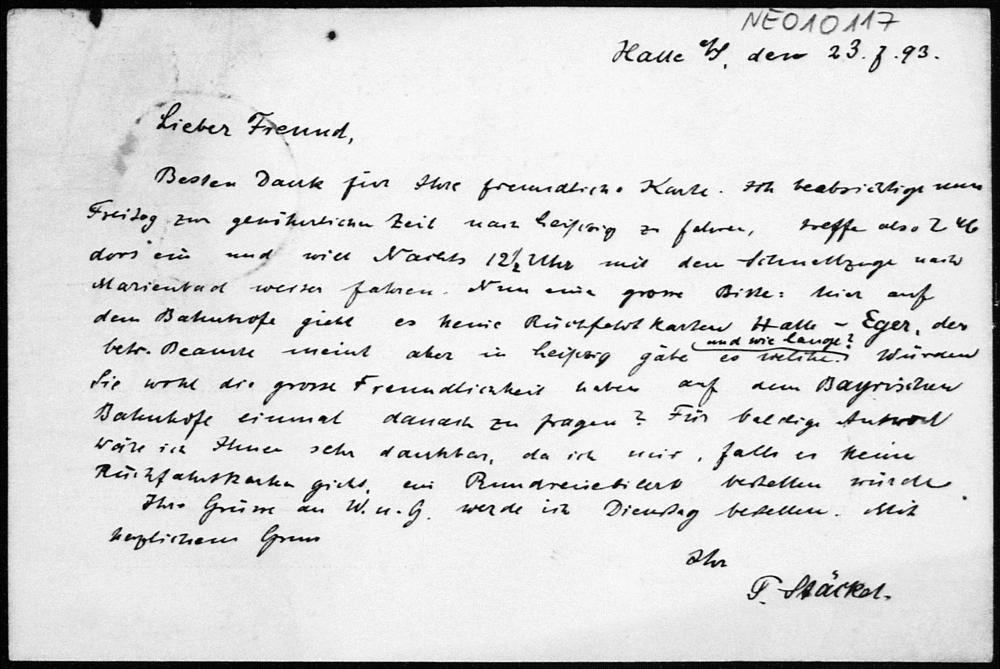 NE010117
Halle a/S, den 23.7.93.
Lieber Freund,
Besten Dank für Ihre freundliche Karte. Ich beabsichtige nun
Freitag zur gewöhnlichen Zeit nach Leipzig zu fahren, treffe also 2 46
dort ein und will Nachts 12½ Uhr mit dem Schnellzuge nach
Marienbad weiter fahren. Nun eine grosse Bitte: hier auf
dem Bahnhofe giebt es keine Rückfahrtkarten Halle – Eger, der
und wie lange?
betr. Beamte meint aber in Leipzig gäbe es welche. Würden
Sie wohl die grosse Freundlichkeit haben auf dem Bayrischen
Bahnhofe einmal danach zu fragen? Für baldige Antwort
wäre ich Ihnen sehr dankbar, da ich mir, falls es keine
Rückfahrtkarten giebt, ein Rundreisebillet bestellen würde.
Ihre Grüsse an W. u. G. werde ich Dienstag bestellen. Mit
herzlichem Gruss
Ihr
P. Stäckel.